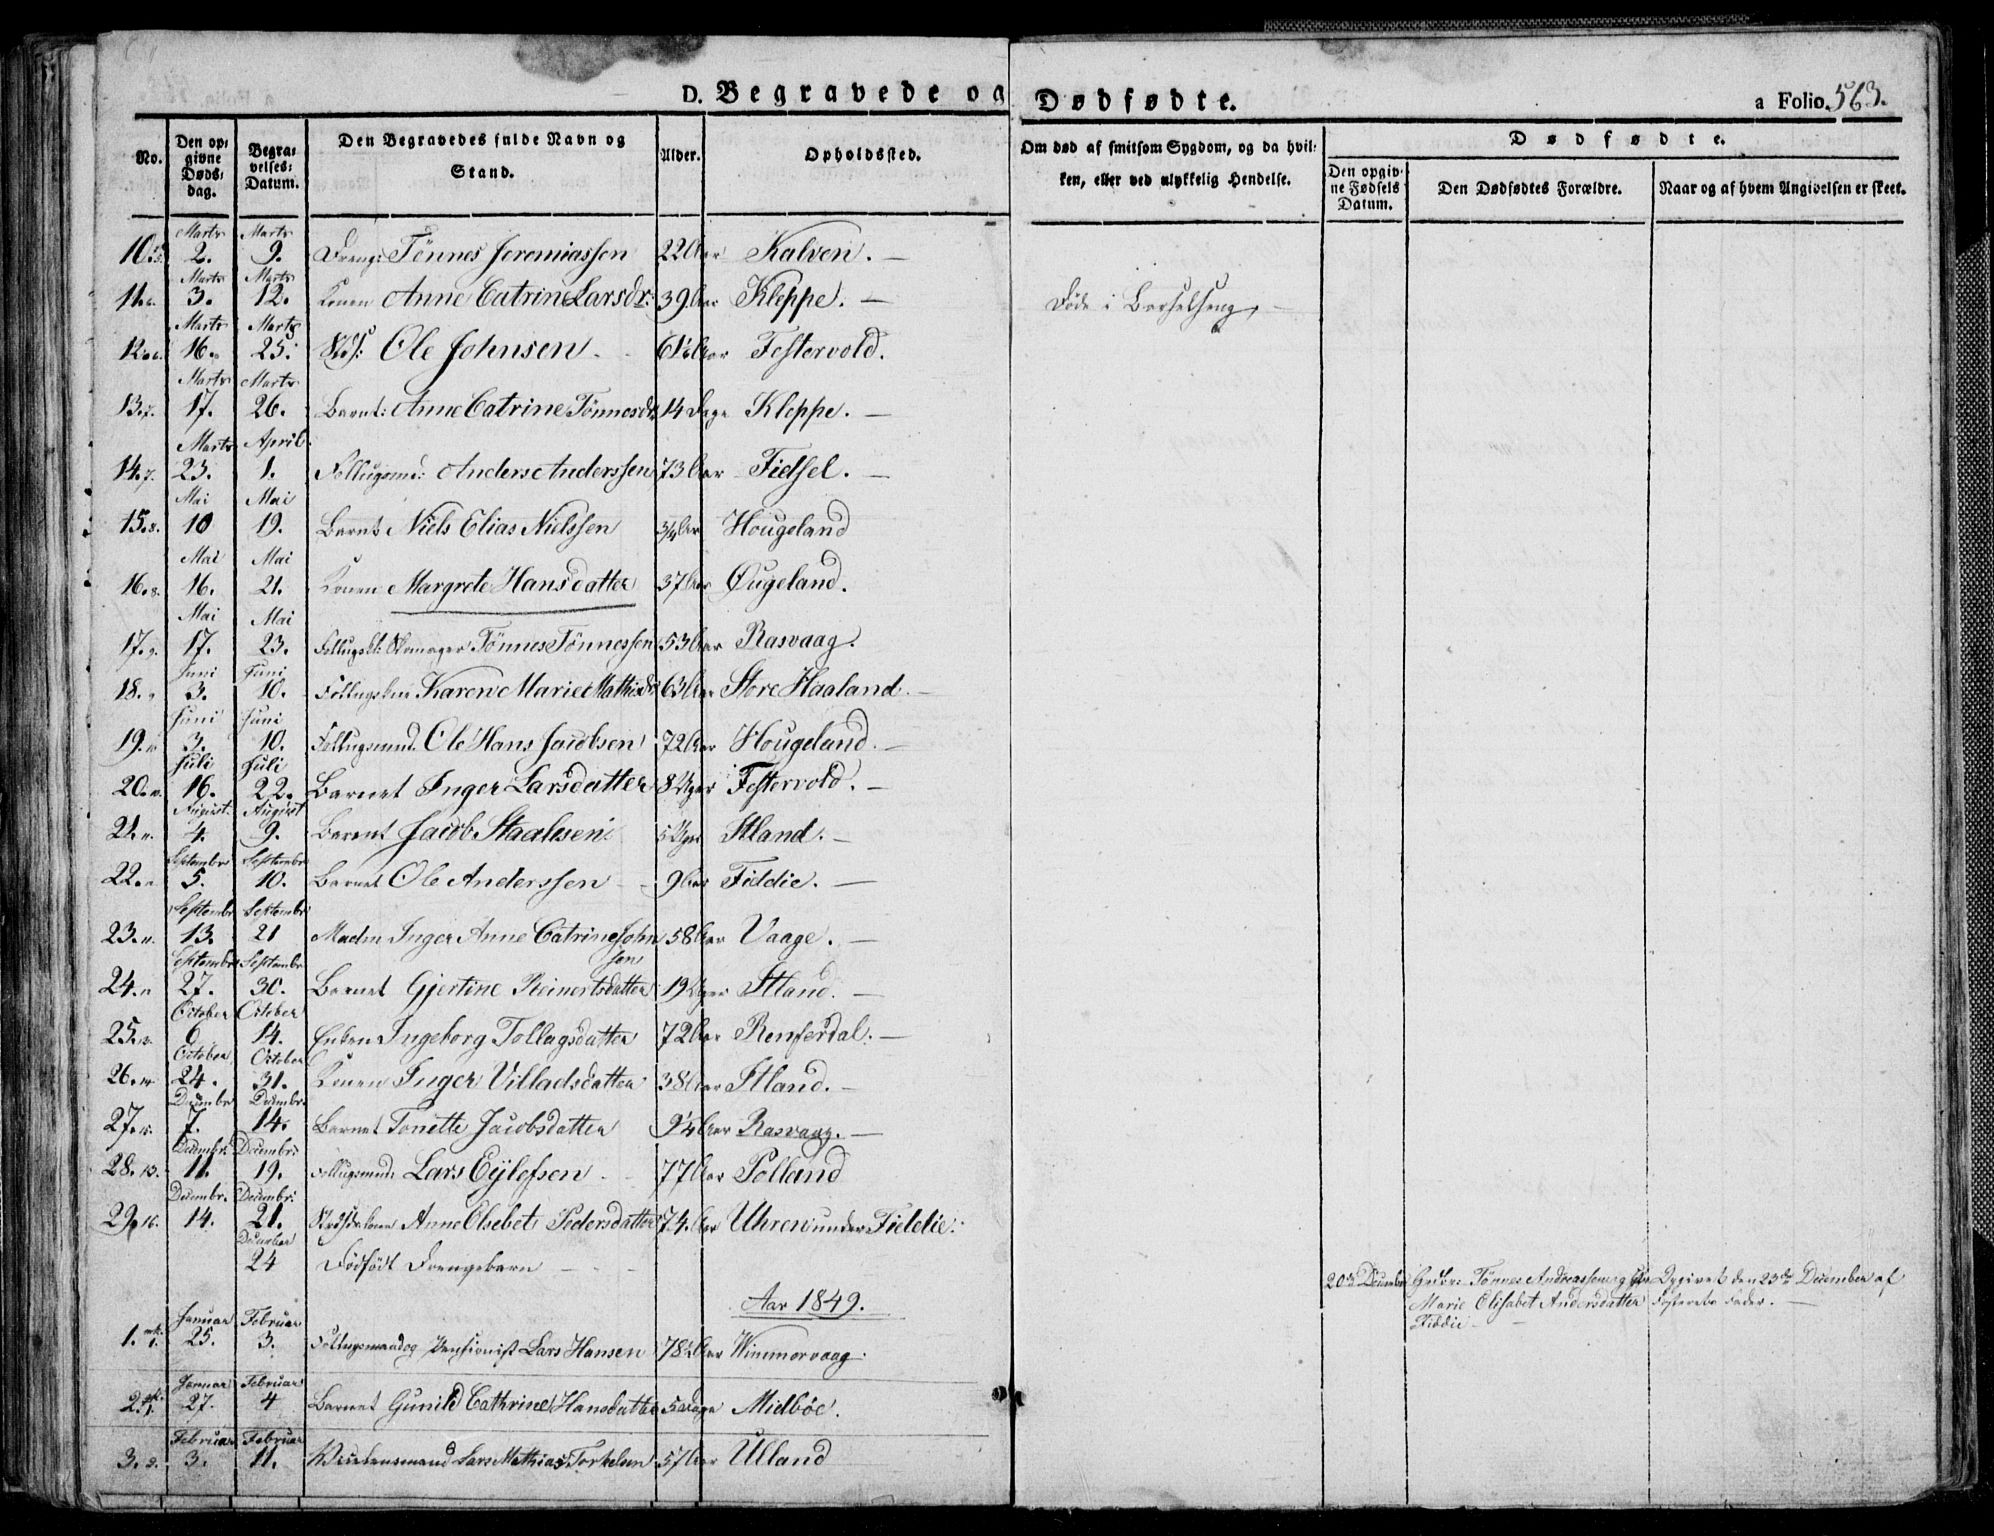 D. Begravede og Dødfødte. a Folio 563.
No. Den opgivne Døds-dag. Begravelses-Datum. Den Begravedes fulde Navn og Stand. Alder. Opholdssted. Om død af smitsom Sygdom, og da hvilken, eller ved ulykkelig Hendelse. Dødfødte. Den opgivne Fødsels Datum. Den Dødfødtes Forældre. Naar og af hvem Angivelsen er skeet.
10. Marts 2. Marts 9. Dreng: Tønnes Jeremiassen 22 Aar Kalven. —
11. Marts 3. Marts 12. Konen Anne Catrine Larsdr: 39 Aar Kleppe. — Døde i Barselseng,
12. Marts 16. Marts 25. Ole Johnsen. Festervold.
13. Marts 17. Marts 26. Barnet: Anne Catrine Tønnesdr 14 Dage Kleppe. —
14. Marts 23. April 1. Føllugsmd: Anders Anderssen 73 Aar Fidsel. —
15. Mai 10 Mai 19. Barnet Niels Elias Nielssen 3/4 Aar Hougeland
16. Mai 16. Mai 21. Konen Margrete Hansdatter 37 Aar Øugeland.
17. Mai 17. Mai 23. Tønnes Tønnessen 53 Aar Rasvaag.
18. Juni 3. Juni 10. Karen Marie Mathisdr 63 Aar Store Haaland. —
19. Juni 3. Juni 10. Føllugsmand. Ole Hans Jacobsen 72 Aar Hougeland. —
20. Juli 16. Juli 22. Barnet Inger Larsdatter 8 Uger Festervold. —
21. August. 4. August 9. Barnet Jacob Staalesen 5 Uger Stland. —
22. Septembr 5. Septembr 10. Barnet Ole Anderssen 9 Aar Fiddie. —
23. Septembr 13. Septembr 21 Madm Inger Anne Catrine Johnsen 58 Aar Vaage. —
24. Septembr 27. Septembr 30. Barnet Gjertine Reinertsdatter 19 Uger Stland. —
25. October 6 October 14. Enken Ingeborg Tollagsdatter 72 Aar Renferdal. —
26. October 24. October 31. Konen Inger Villadsdatter 38 Aar Stland. —
27. Decembr 7. Decembr. 14. Barnet Tonette Jacobsdatter Aar Rasvaag. —
28. Decembr: 11. Decembr: 19. Føllugsmand: Lars Eylefsen 77 Aar Polland
29. Decembr. 14. Decembr: 21. Anne Elsebet Pedersdatter 74 Aar Uhren under Fiddie.
December 24 Dødfødt Drengebarn — 20de December Gmd: Tønnes Andreassen og Marie Elisabet Andersdatter Fiddie — Opgivet den 23de December af Fosterets Fader. —
Aar 1849.
1. Januar 25. Februar 3. Føllugsmand og Pensionist Lars Hansen Aar Wimmervaag.
2. Januar 27. Februar 4 Barnet Gunild Cathrine Hansdatter 5 Dage Midbøe.
3. Februar 3. Februar 11. Lars Mathias Torkelsen 57 Aar Ulland